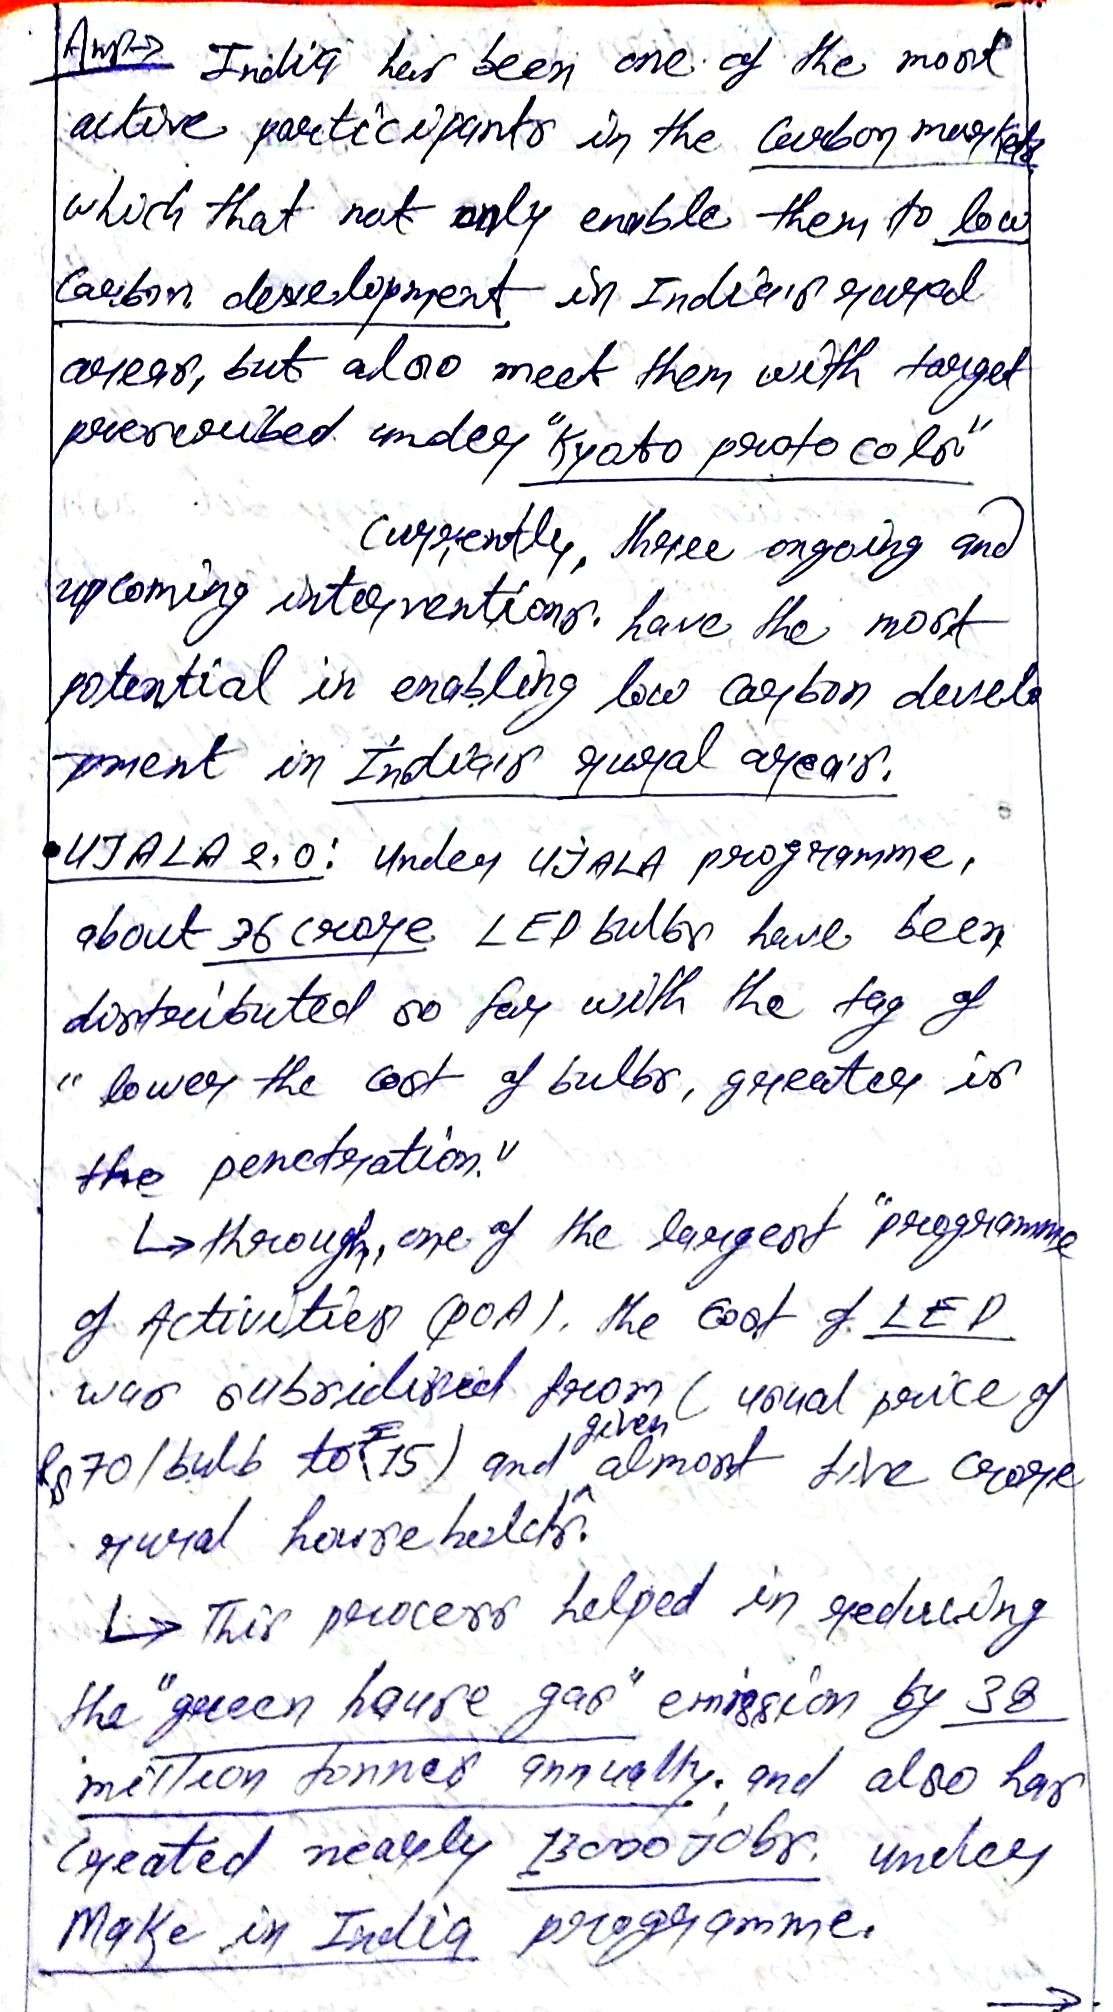 Ans→ India has been one of the most
active participants in the carbon markets,
which that not only enable them to low
carbon development in India's rural
areas, but also meet them with target
prescribed under "Kyoto protocols"
Currently, three ongoing and
upcoming interventions. have the most
potential in enabling low carbon develo
-pment in India's rural areas.
•UJALA 2.0: Under UJALA programme,
about 36 crore LED bulbs have been
distributed so far with the tag of
"lower the cost of bulbs, greater is
the penetration."
↳ through, one of the largest "programme
of Activities (POA), the cost of LED
was subsidised from (usual price of
Rs 70/bulb to ₹15) and given almost five crore
rural households.
↳ This process helped in reducing
the "green house gas" emission by 38
million tonnes annually. and also has
created nearly 13000 jobs. under
Make in India programme.
→